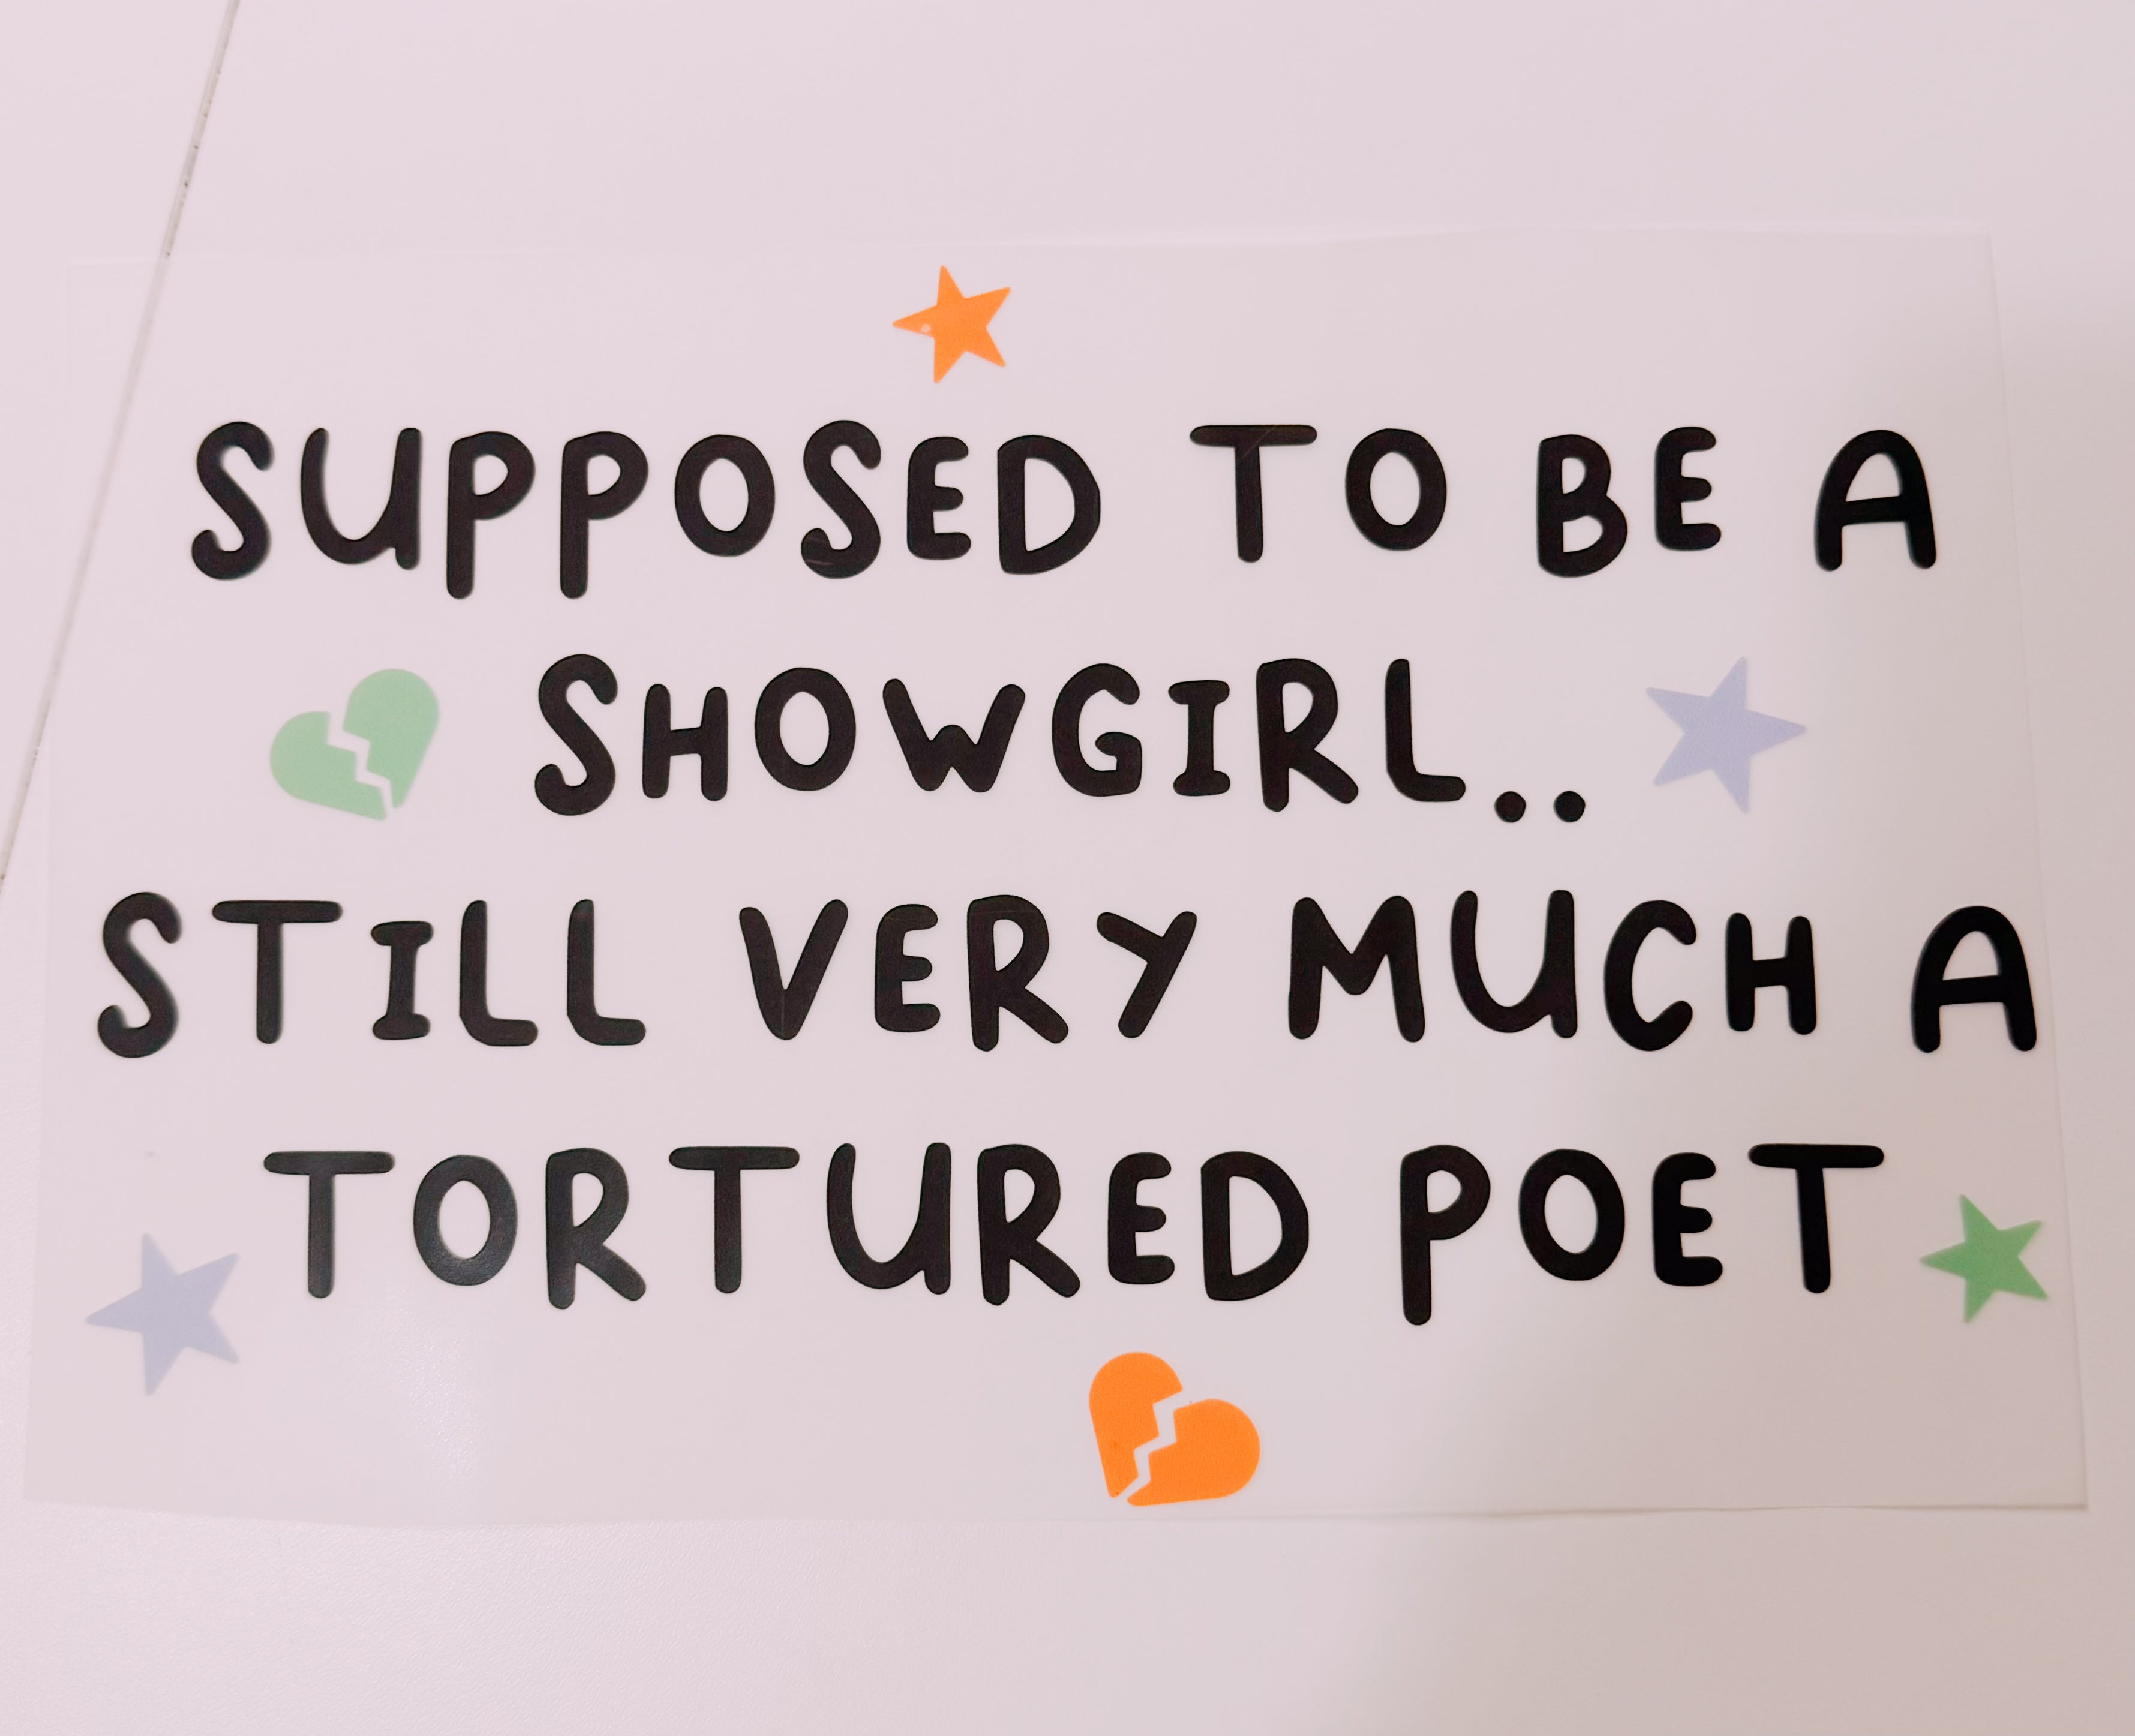 SUPPOSED TO BE A
SHOWGIRL..
STILL VERY MUCH A
TORTURED POET